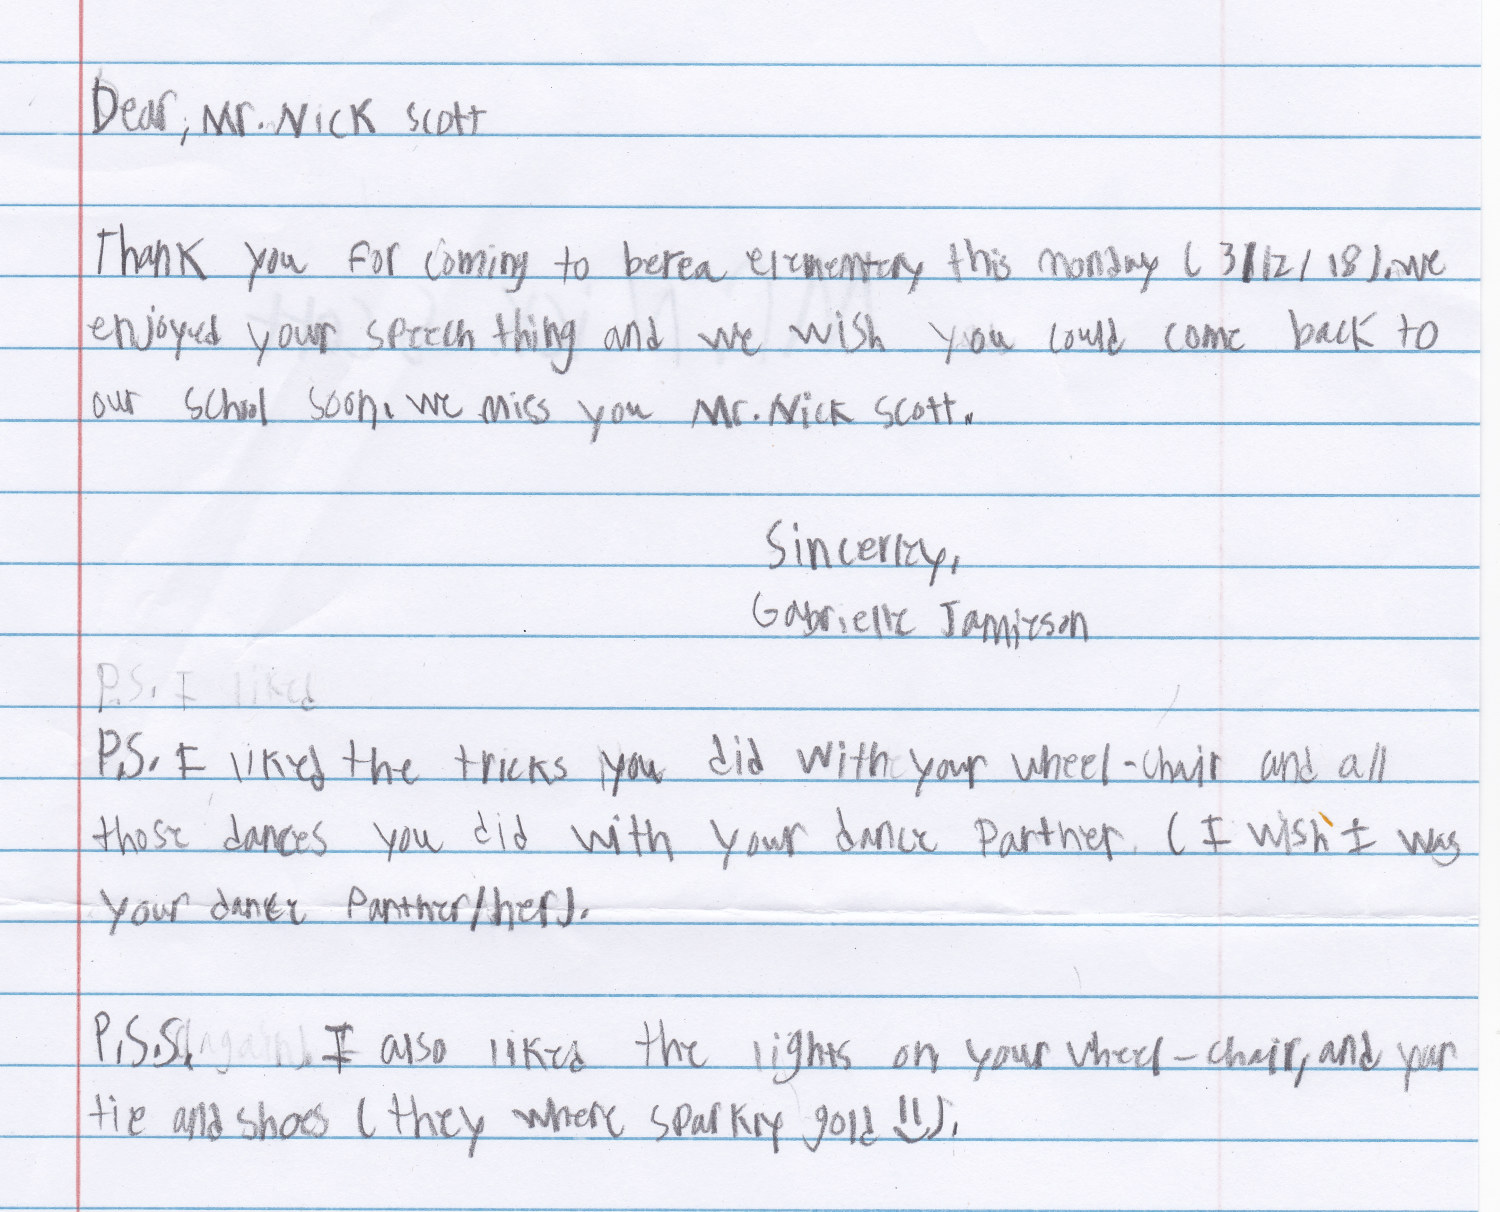 Dear, Mr. Nick Scott
Thank you for coming to berea elementery this monday (3/12/18). we
enjoyed your speech thing and we wish you could come back to
our school soon. we miss you Mr. Nick Scott.
Sincerley,
Gabrielle Jamieson
P.S. I liked
P.S. I liked the tricks you did with your wheel-chair and all
those dances you did with your dance partner. (I wish I was
your dance partner/her).
P.S.S. (again). I also liked the lights on your wheel-chair, and your
tie and shoes (they where sparkly gold !!).